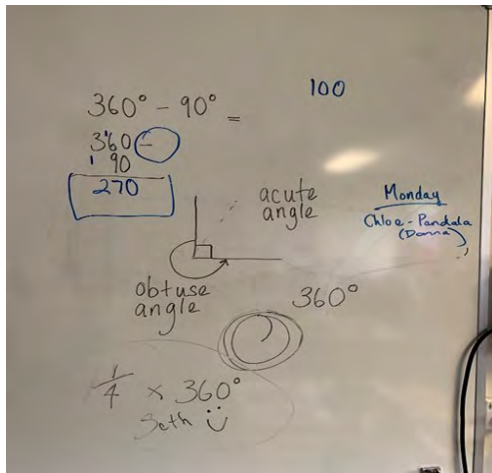 100
360° - 90° =
360 -
90
270
acute
angle
Monday
Chloe - Pandala
(Donna)
obtuse
angle
360°
1/4 × 360°
Seth